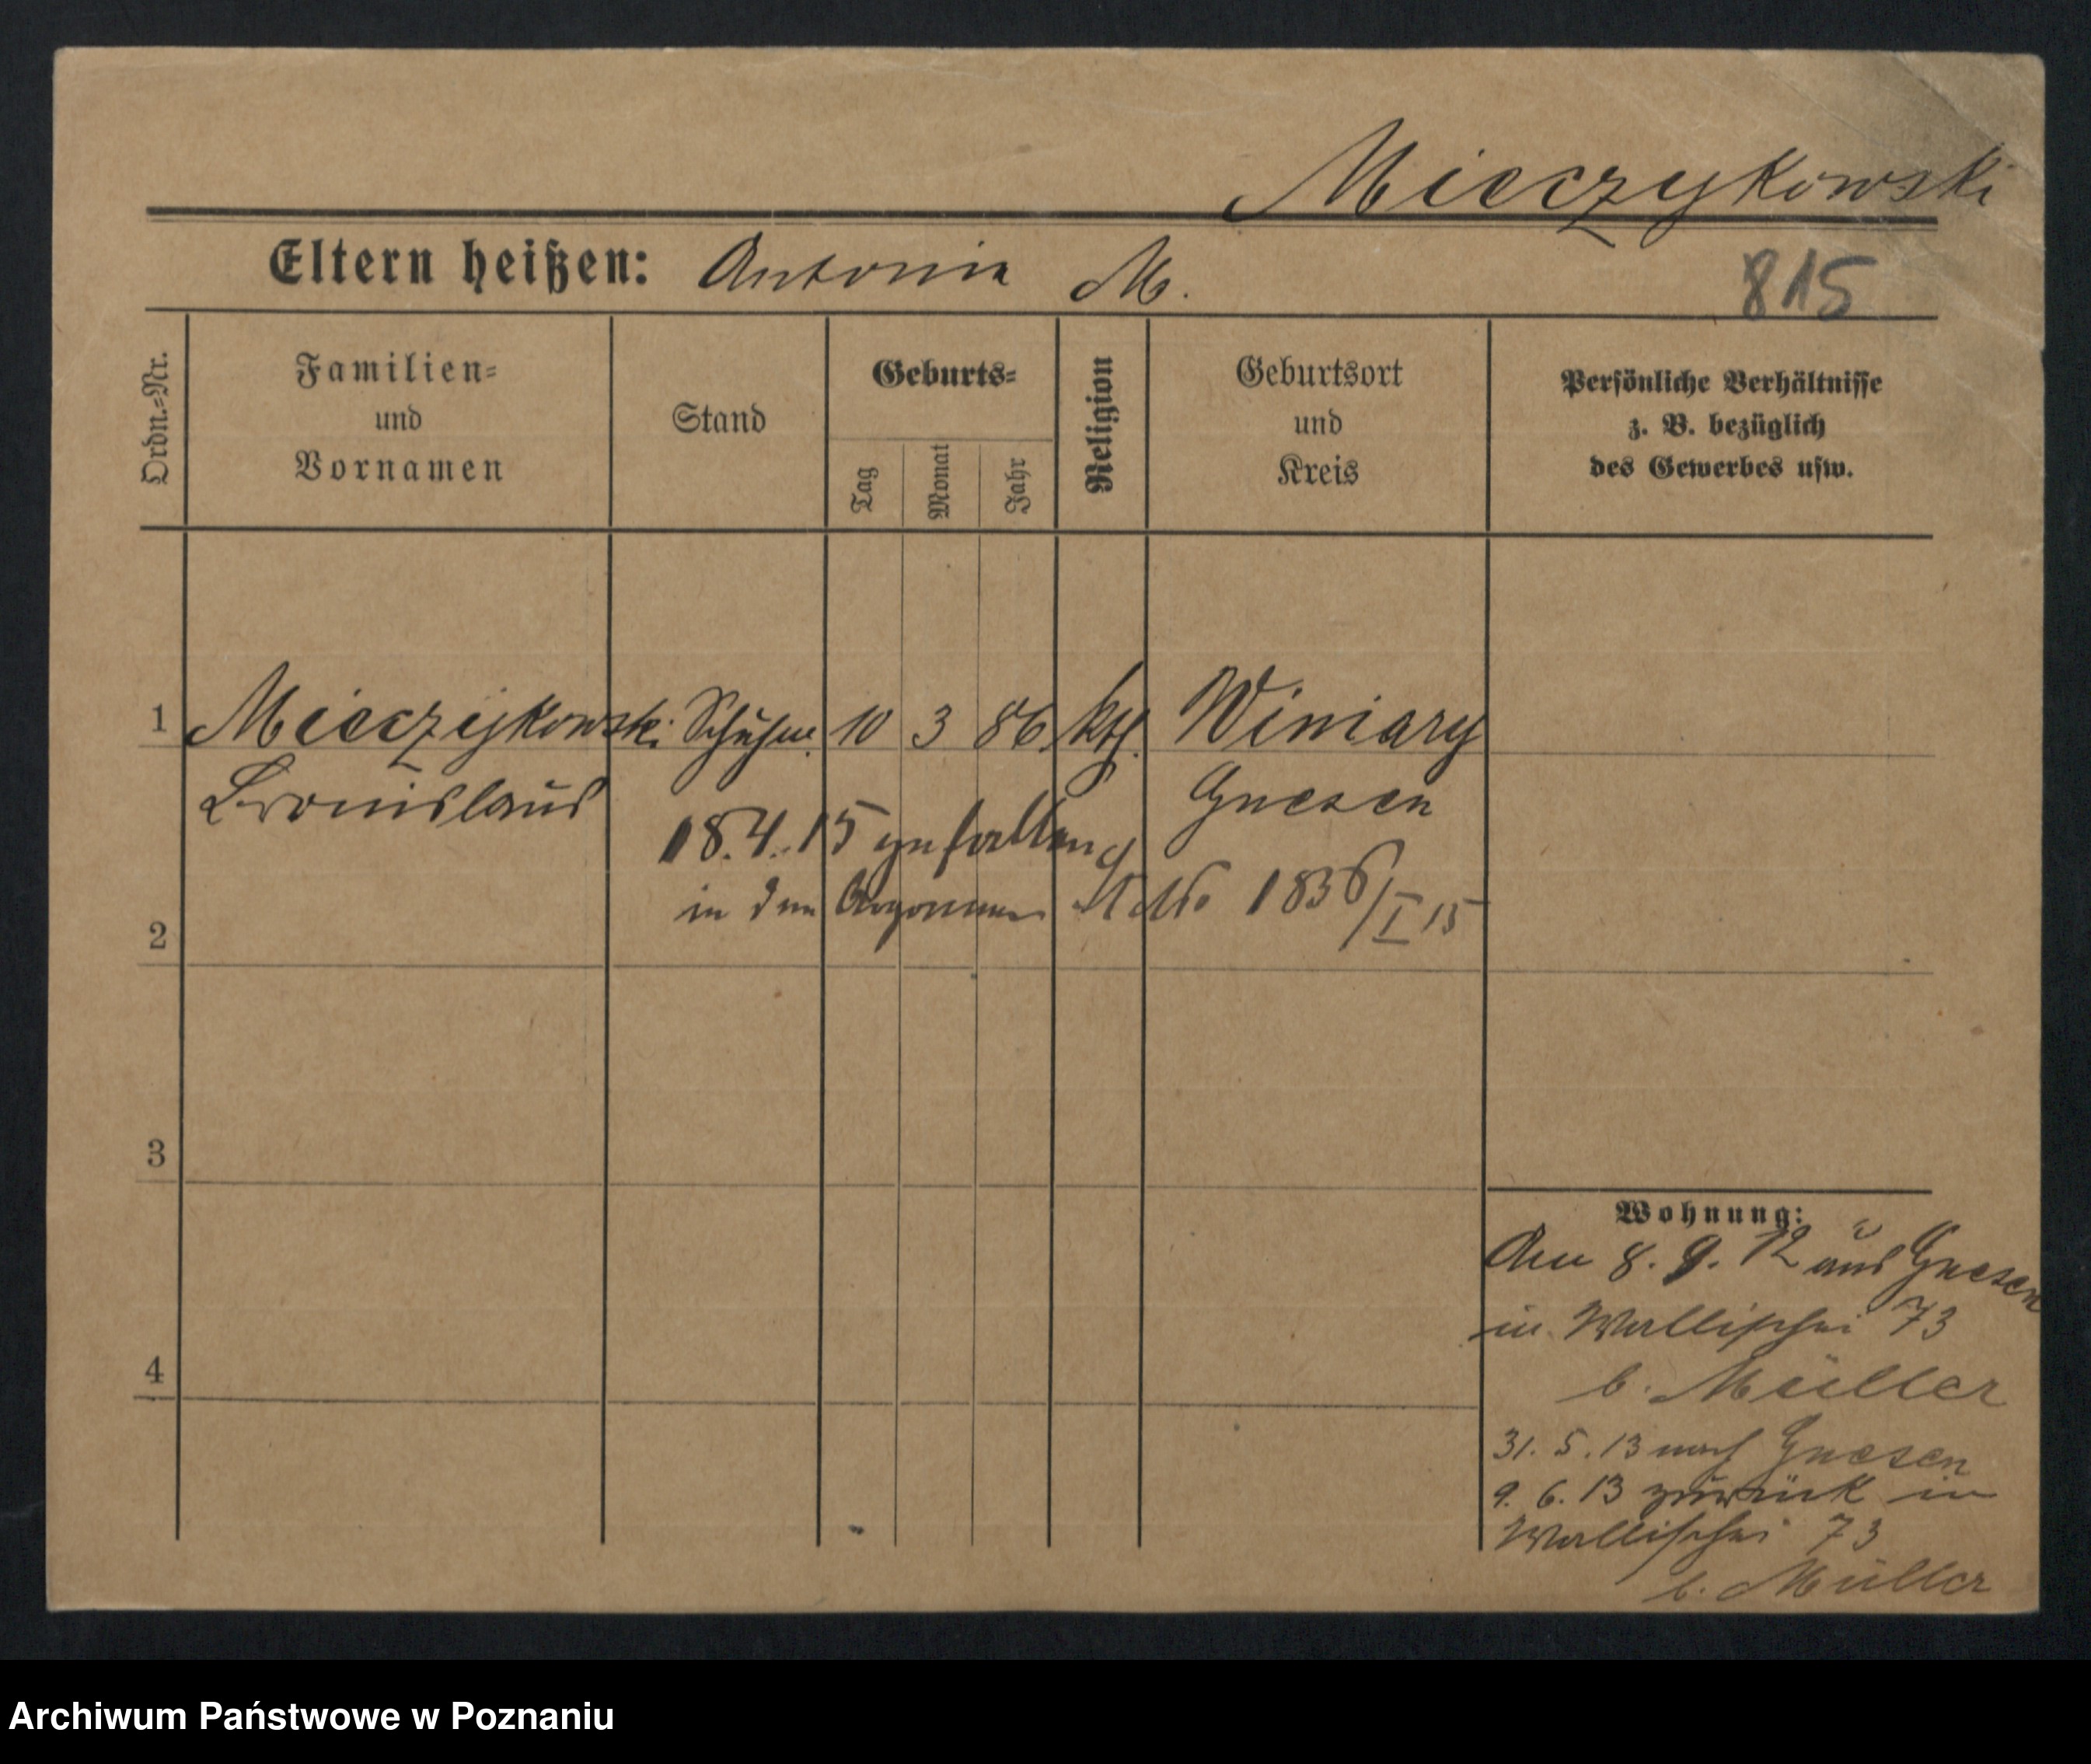 Mieczykowski
Eltern heißen: Antonia M.
815
Ordn.=Nr.
Familien=
und
Vornamen
Stand
Geburts=
Tag
Monat
Jahr
Religion
Geburtsort
und
Kreis
Persönliche Verhältnisse
z. B. bezüglich
des Gewerbes usw.
1 Mieczykowski Schuhm. 10 3 86 kth. Winiary
Bronislaus Gnesen
18.4.15 gefallen
in den Argonnen No 1836/I 15
2
3
4
Wohnung:
Am 8. 9. 12 aus Gnesen
in Wallischei 73
b. Müller
31. 5. 13 nach Gnesen
9. 6. 13 zurück in
Wallischei 73
b. Müller
Archiwum Państwowe w Poznaniu